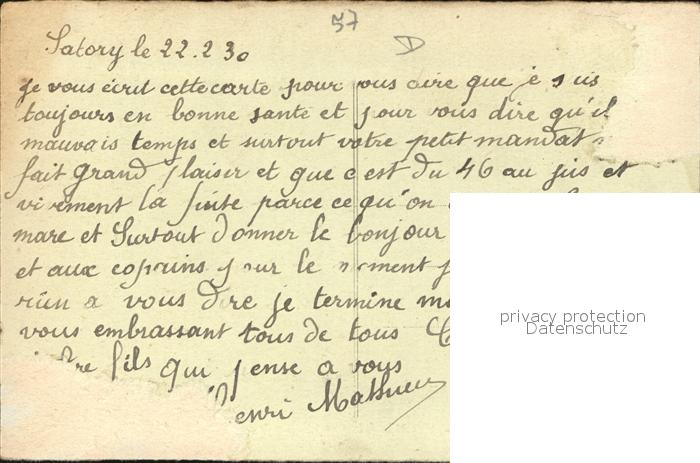 57
Satory le 22.2 30
je vous écrit cette carte pour vous dire que je suis
toujours en bonne santé et pour vous dire qu'il
mauvais temps et surtout votre petit mandat
fait grand plaisir et que c'est du 46 au jus et
vivement la fuite parce ce qu'on
mare et surtout donner le bonjour
et aux copains pour le moment
rien a vous dire je termine
vous embrassant tous de tous
fils qui pense a vous
Henri Mathieu
privacy protection
Datenschutz